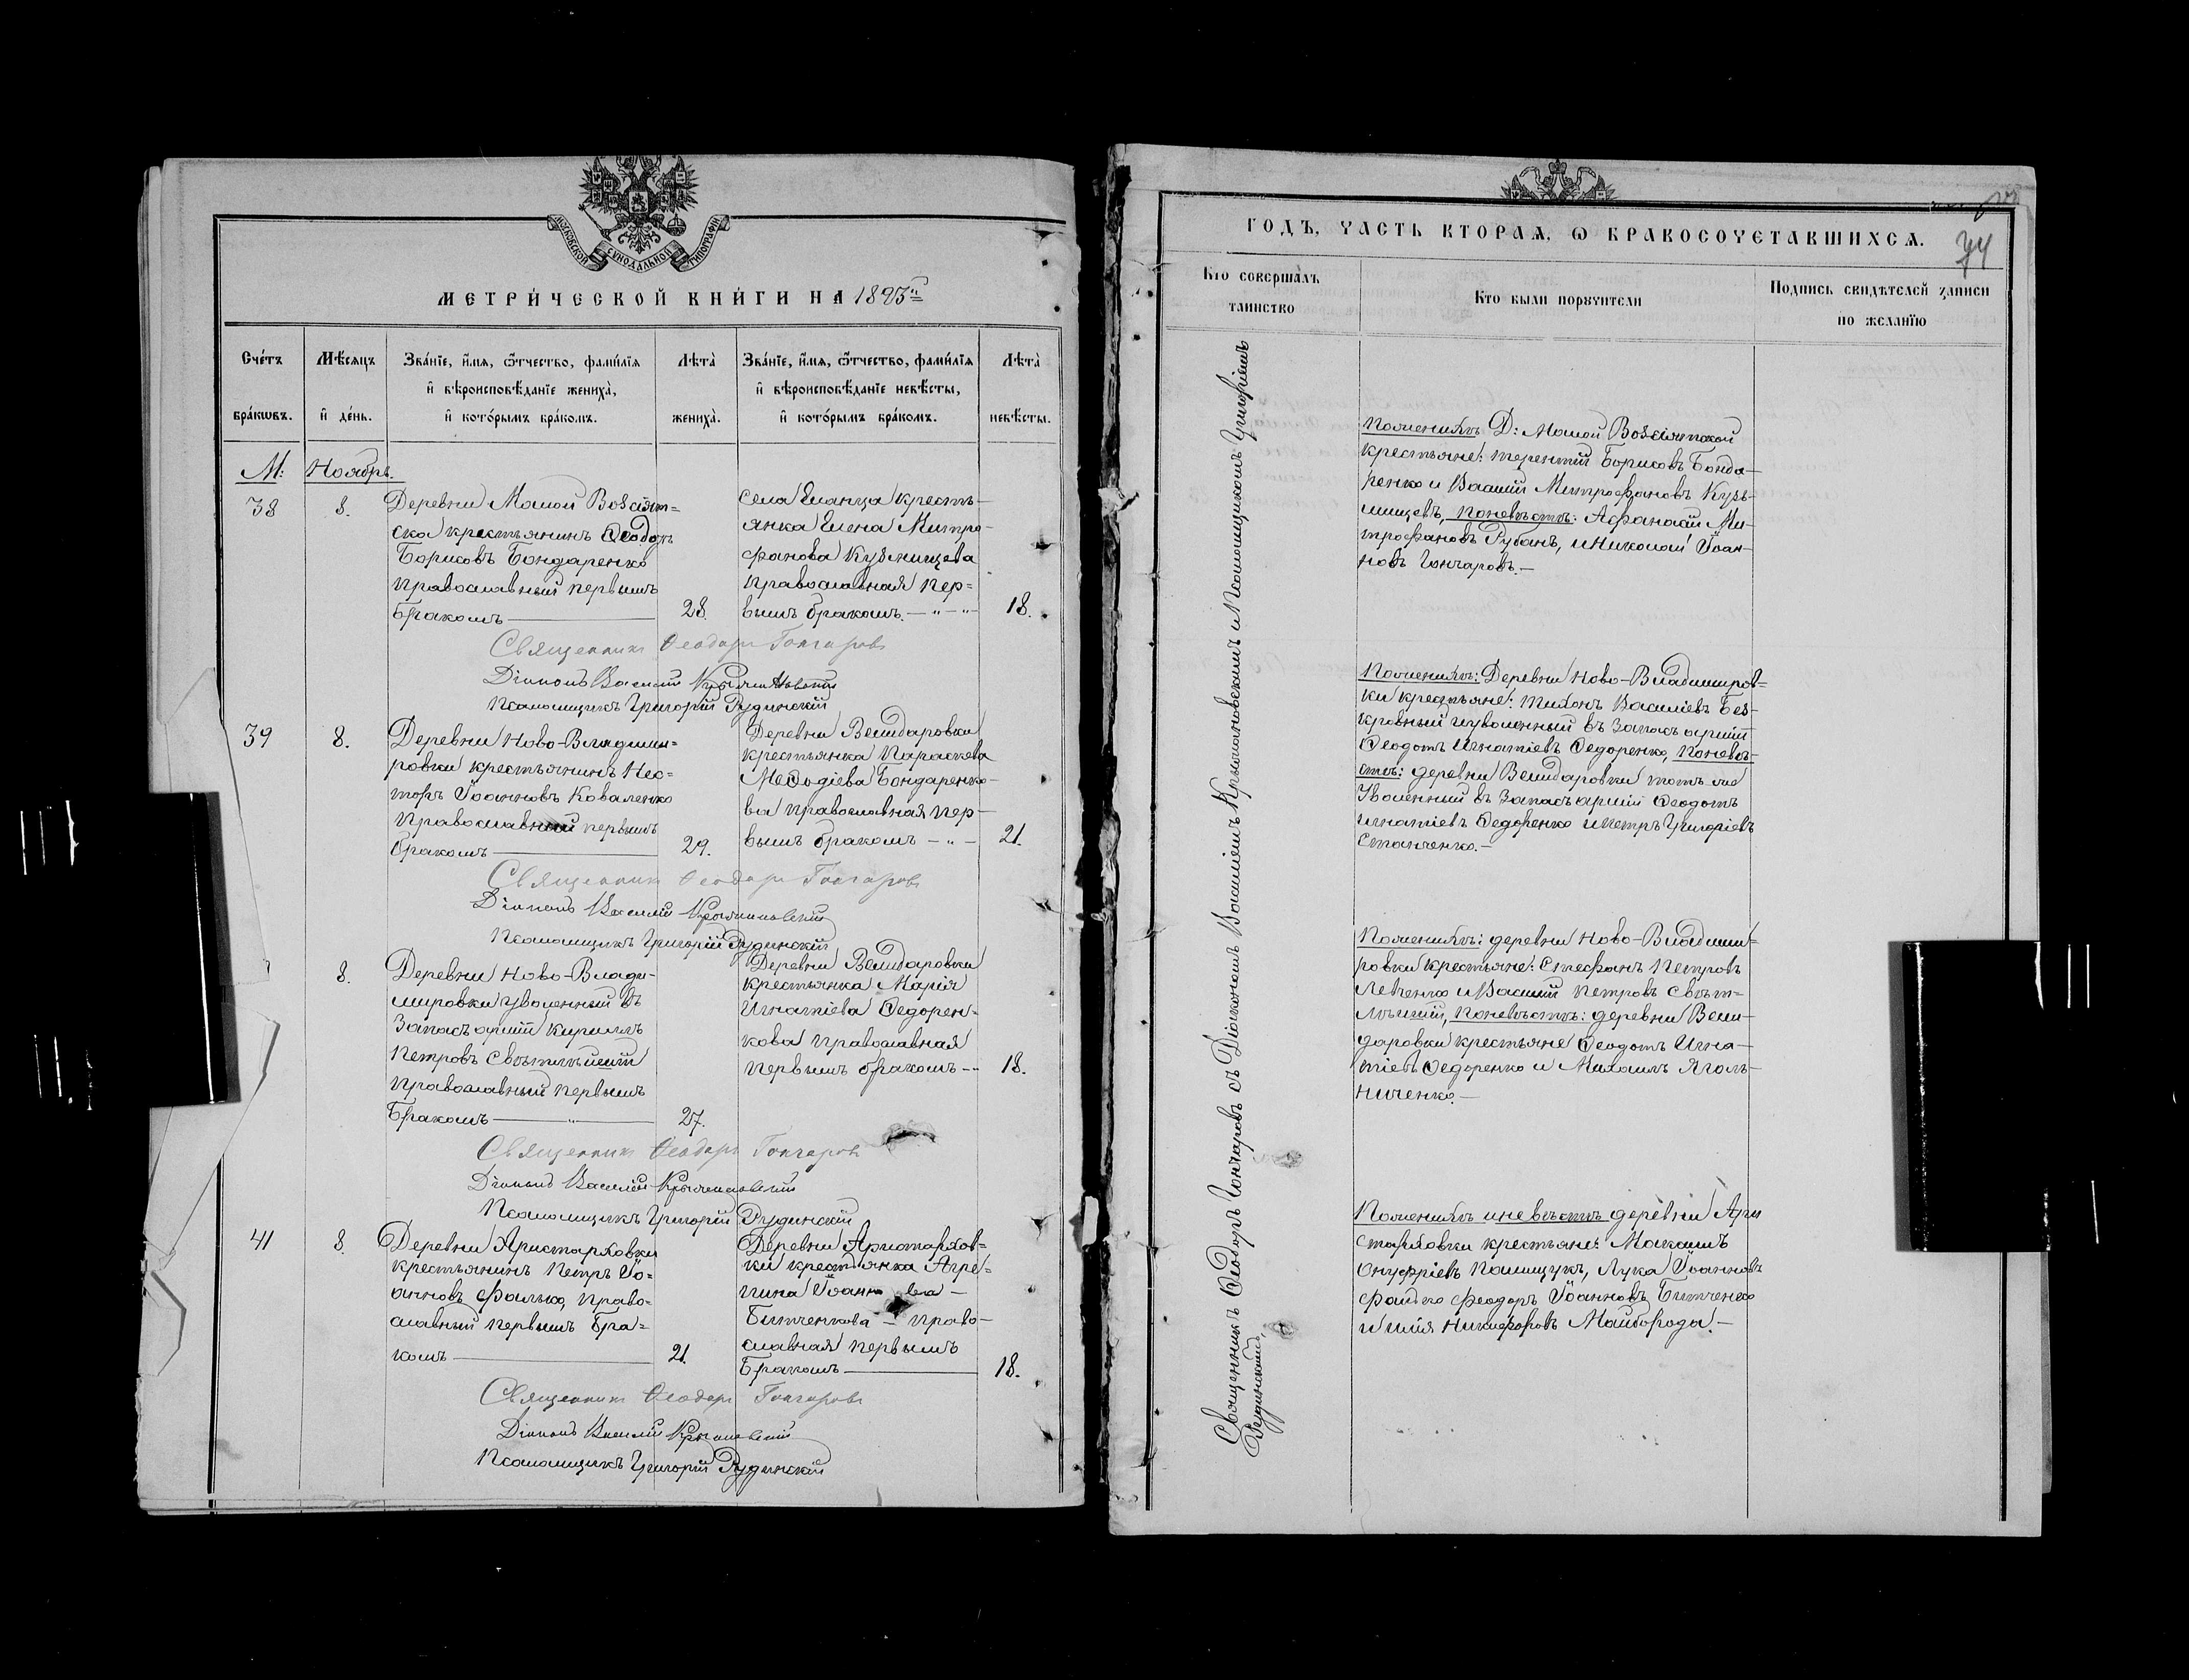 МОСКОВСКОЙ СѴНОДАЛЬНОЙ ТИПОГРАФІИ
МЕТРИ́ЧЕСКОЙ КНИ́ГИ НА 1893й
Счétъ бра́кѡвъ.
Мѣ́сяцъ и҆ де́нь.
Зва́нїе, и҆́мѧ, ѻ҆́тчество, фами́лїѧ
и҆ вѣроисповѣ́данїе жениха̀,
и҆ кото́рымъ бра́комъ.
Лѣта̀ жениха̀.
Зва́нїе, и҆́мѧ, ѻ҆́тчество, фами́лїѧ
и҆ вѣроисповѣ́данїе невѣ́сты,
и҆ кото́рымъ бра́комъ.
Лѣта̀ невѣ́сты.
М: Ноябрь.
38
8.
Деревни Малой Вобсіят=
ска крестьянинъ Ѳеодотъ
Борисовъ Бондаренко
православный первымъ
бракомъ
28.
Села Еланца кресть-
янка Елена Митро-
фанова Кузьмищева
православная пер-
вымъ бракомъ
18.
Священникъ Ѳеодоръ Гончаровъ
Діаконъ Василій Крыжановскій
Псаломщикъ Григорій Рудинскій
39
8.
Деревни Ново-Владими=
ровки крестьянинъ Нес=
торъ Іоанновъ Коваленко
православный первымъ
бракомъ
29.
Деревни Велидаровки
крестьянка Параскева
Меѳодіева Бондаренко-
ва православная пер-
вымъ бракомъ
21.
Священникъ Ѳеодоръ Гончаровъ
Діаконъ Василій Крыжановскій
Псаломщикъ Григорій Рудинскій
8.
Деревни Ново-Влади-
мировки уволенный въ
запасъ арміи Кириллъ
Петровъ Свѣтлѣйшій
православный первымъ
бракомъ
27.
Деревни Велидаровки
крестьянка Марія
Игнатіева Ѳедорен-
кова православная
первымъ бракомъ
18.
Священникъ Ѳеодоръ Гончаровъ
Діаконъ Василій Крыжановскій
Псаломщикъ Григорій Рудинскій
41
8.
Деревни Аристарховки
крестьянинъ Петръ Іо=
анновъ Фалько, право=
славный первымъ бра=
комъ
21.
Деревни Аристархов=
ки крестьянка Агре=
пина Іоаннова
Битченкова - право-
славная первымъ
бракомъ
18.
Священникъ Ѳеодоръ Гончаровъ
Діаконъ Василій Крыжановскій
Псаломщикъ Григорій Рудинскій
ГОДЪ, ЧАСТЬ ВТОРАѦ, Ѡ БРАКОСОЧЕТАВШИХСѦ.
74
Кто совершалъ
таинство
Кто были поручители
Подпись свидѣтелей записи
по желанїю
Священникъ Ѳеодоръ Гончаровъ съ Діакономъ Василіемъ Крыжановскимъ и Псаломщикомъ Григоріемъ
Рудинскимъ.
По женихѣ Д: Малой Вобсіятской
крестьяне: Терентій Борисовъ Бонда-
ренко и Василій Митрофановъ Кузь-
мищевъ, по невѣстѣ: Афанасій Ми-
трофановъ Рубанъ, и Николай Іоан-
новъ Гончаровъ.-
По женихѣ: Деревни Ново-Владимиров=
ки крестьяне: Тихонъ Василіевъ Без-
кровный и уволенный въ запасъ арміи
Ѳеодотъ Игнатіевъ Ѳедоренко, по невѣ-
стѣ: деревни Велидаровки тотъ же
уволенный въ запасъ арміи Ѳеодотъ
Игнатіевъ Ѳедоренко и Петръ Григоріевъ
Статченко.-
По женихѣ: деревни Ново-Владими=
ровки крестьяне: Стефанъ Петровъ
Левченко и Василій Петровъ Свѣт=
лѣйшій, по невѣстѣ: деревни Вели-
даровки крестьяне Ѳеодотъ Игна-
тіевъ Ѳедоренко и Михаилъ Яголь-
ниченко.-
По женихѣ и невѣстѣ деревни Ари
старховки крестьяне: Максимъ
Онуфріевъ Полищукъ, Лука Іоанновъ
Фалько Феодоръ Іоанновъ Битченко
и Илія Никифоровъ Майборода.-